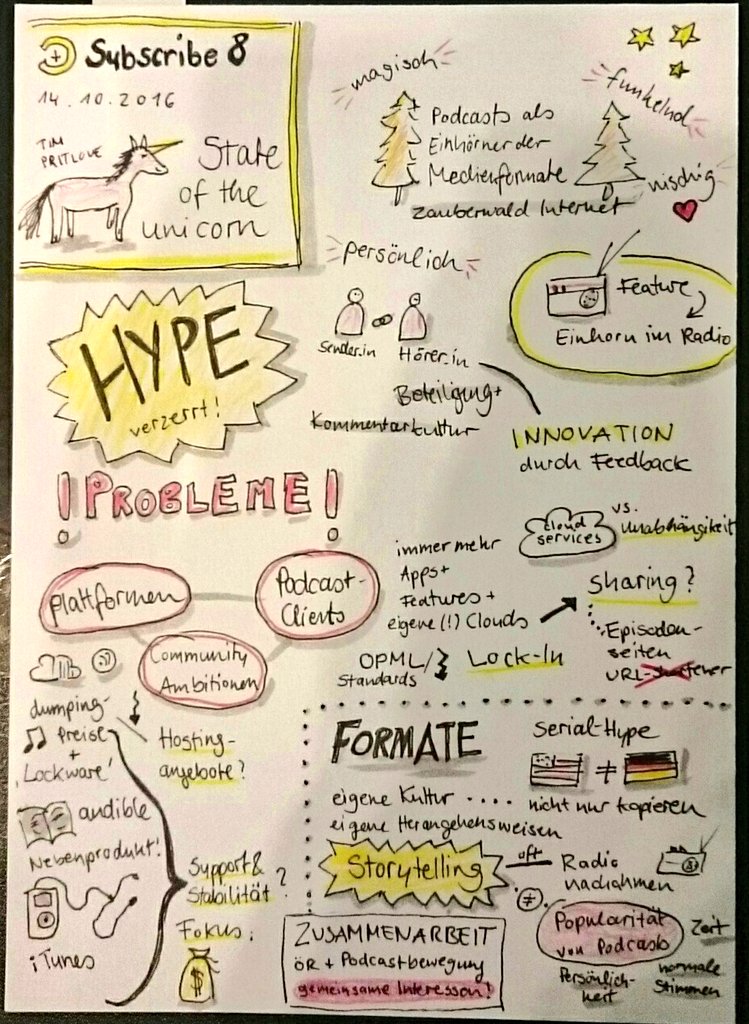 Subscribe 8
14.10.2016
TIM
PRITLOVE
State
of the
unicorn
magisch
funkelnd
Podcasts als
Einhörner der
Medienformate
nischig
Zauberwald Internet
persönlich
Sender.in
Hörer.in
Feature
Einhorn im Radio
Beteiligung+
Kommentarkultur
INNOVATION
durch Feedback
HYPE
verzerrt!
!PROBLEME!
Plattformen
Podcast-
Clients
Community
Ambitionen
immer mehr
Apps+
Features+
eigene(!) Clouds
cloud
services
vs.
Unabhängikeit
Sharing?
Episoden-
seiten
URL-Shortener
OPML/
Standards
Lock-In
dumping-
Preise
+
'Lockware'
Hosting-
angebote?
audible
Nebenprodukt!
iTunes
Support &
Stabilität?
Fokus:
$
FORMATE
Serial-Hype
≠
eigene Kultur .... nicht nur kopieren
eigene Herangehensweisen
Storytelling
oft
Radio
nachahmen
≠
Popularität
von Podcasts
Zeit
Persönlich-
keit
normale
Stimmen
ZUSAMMENARBEIT
ÖR + Podcastbewegung
gemeinsame Interessen!